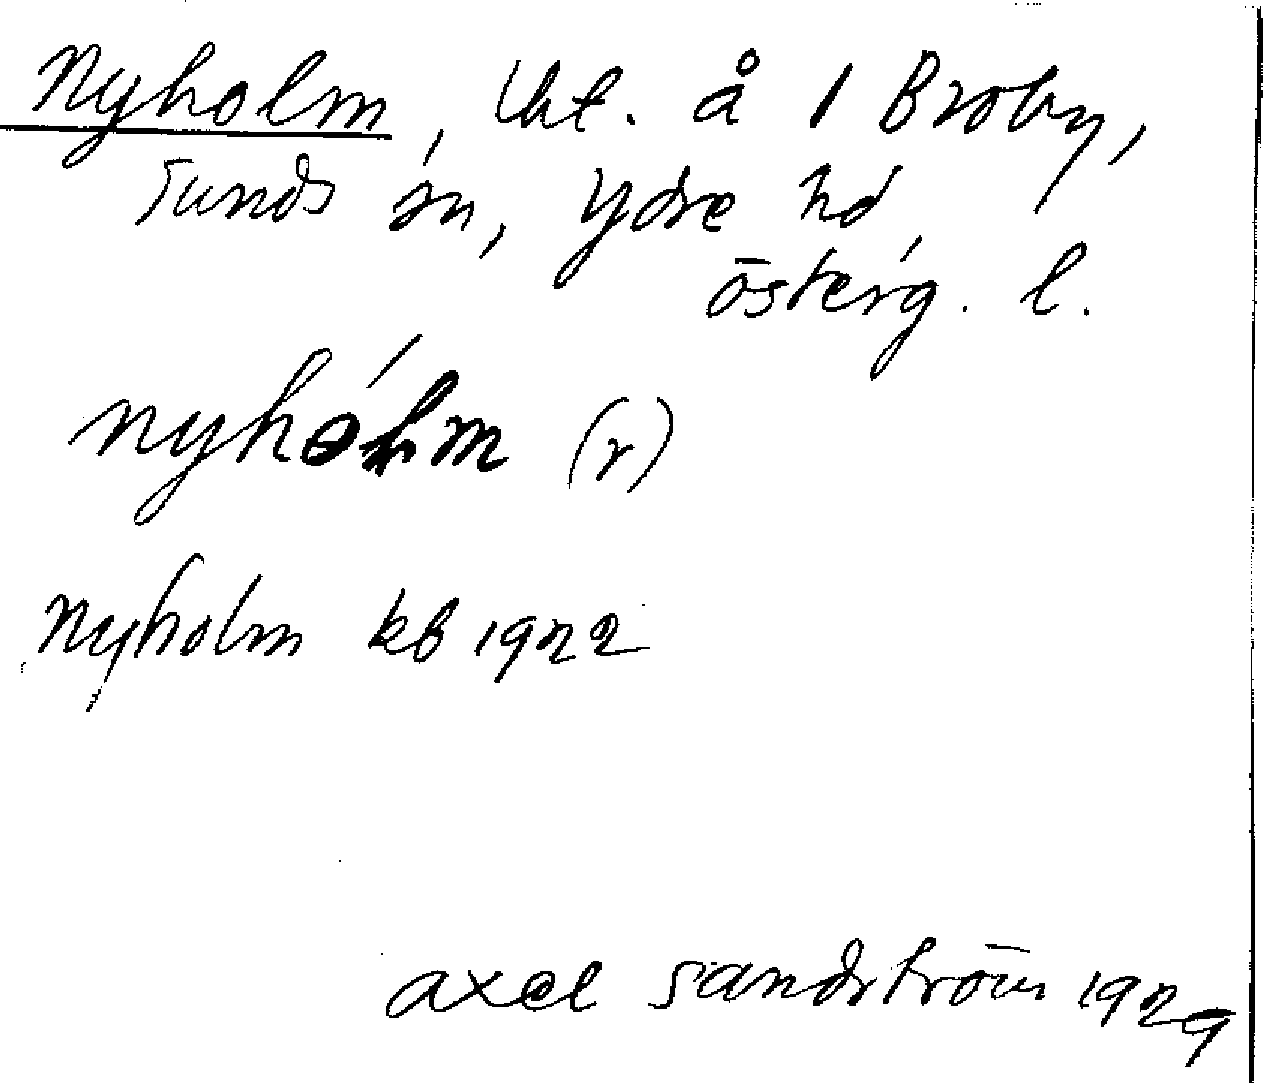 Nyholm, lht. å 1 Broby,
Sunds sn, Ydre hd,
Österg. l.
nyhólm (r)
Nyholm kb 1922
Axel Sandström 1929